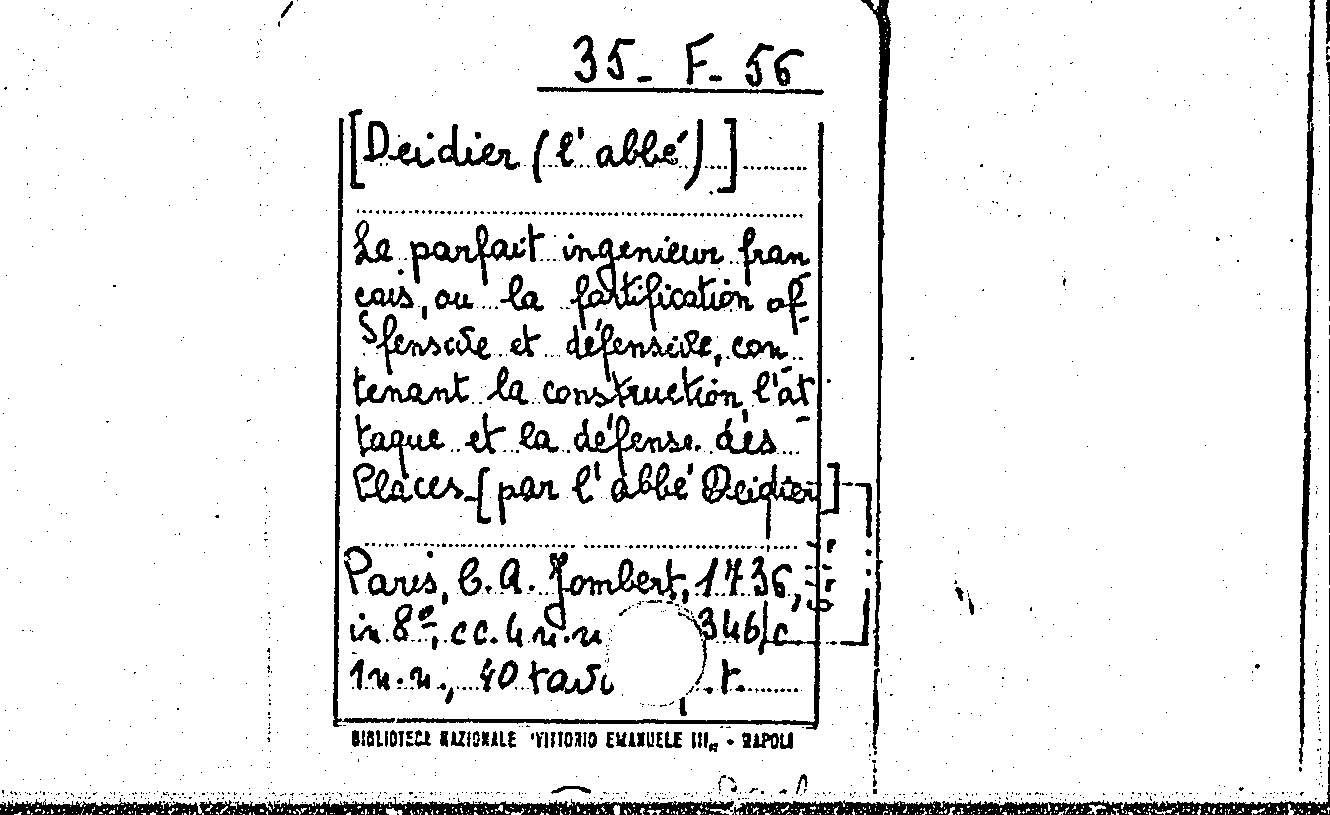 35- F- 56
[Deidier (l'abbé)]
Le parfait ingenieur fran
cais, ou la fortification of-
fensive et défensive, con-
tenant la construction, l'at-
taque et la défense des
Places [par l'abbé Deidier]
Paris, C. A. Jombert, 1736,
in 8º, cc. 4 n.n 346, c
1 n. n., 40 tav t.
BIBLIOTECA NAZIONALE "VITTORIO EMANUELE III" - NAPOLI